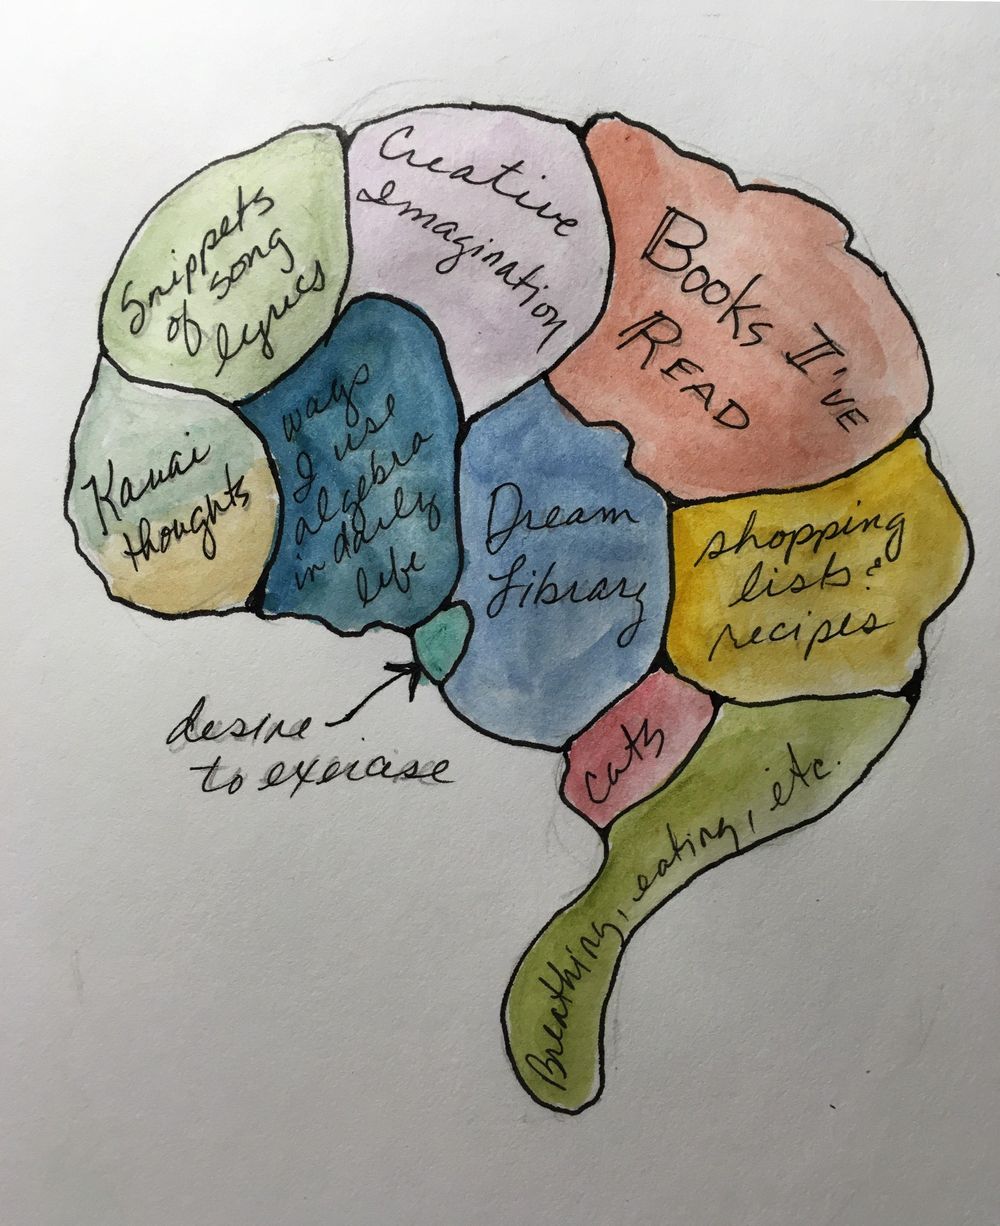 Creative
Imagination
Snippets
of song
lyrics
Books I've
READ
Kauai
thoughts
ways
I use
algebra
in daily
life
Dream
Library
shopping
lists &
recipes
desire
to exercise
cats
Breathing, eating, etc.